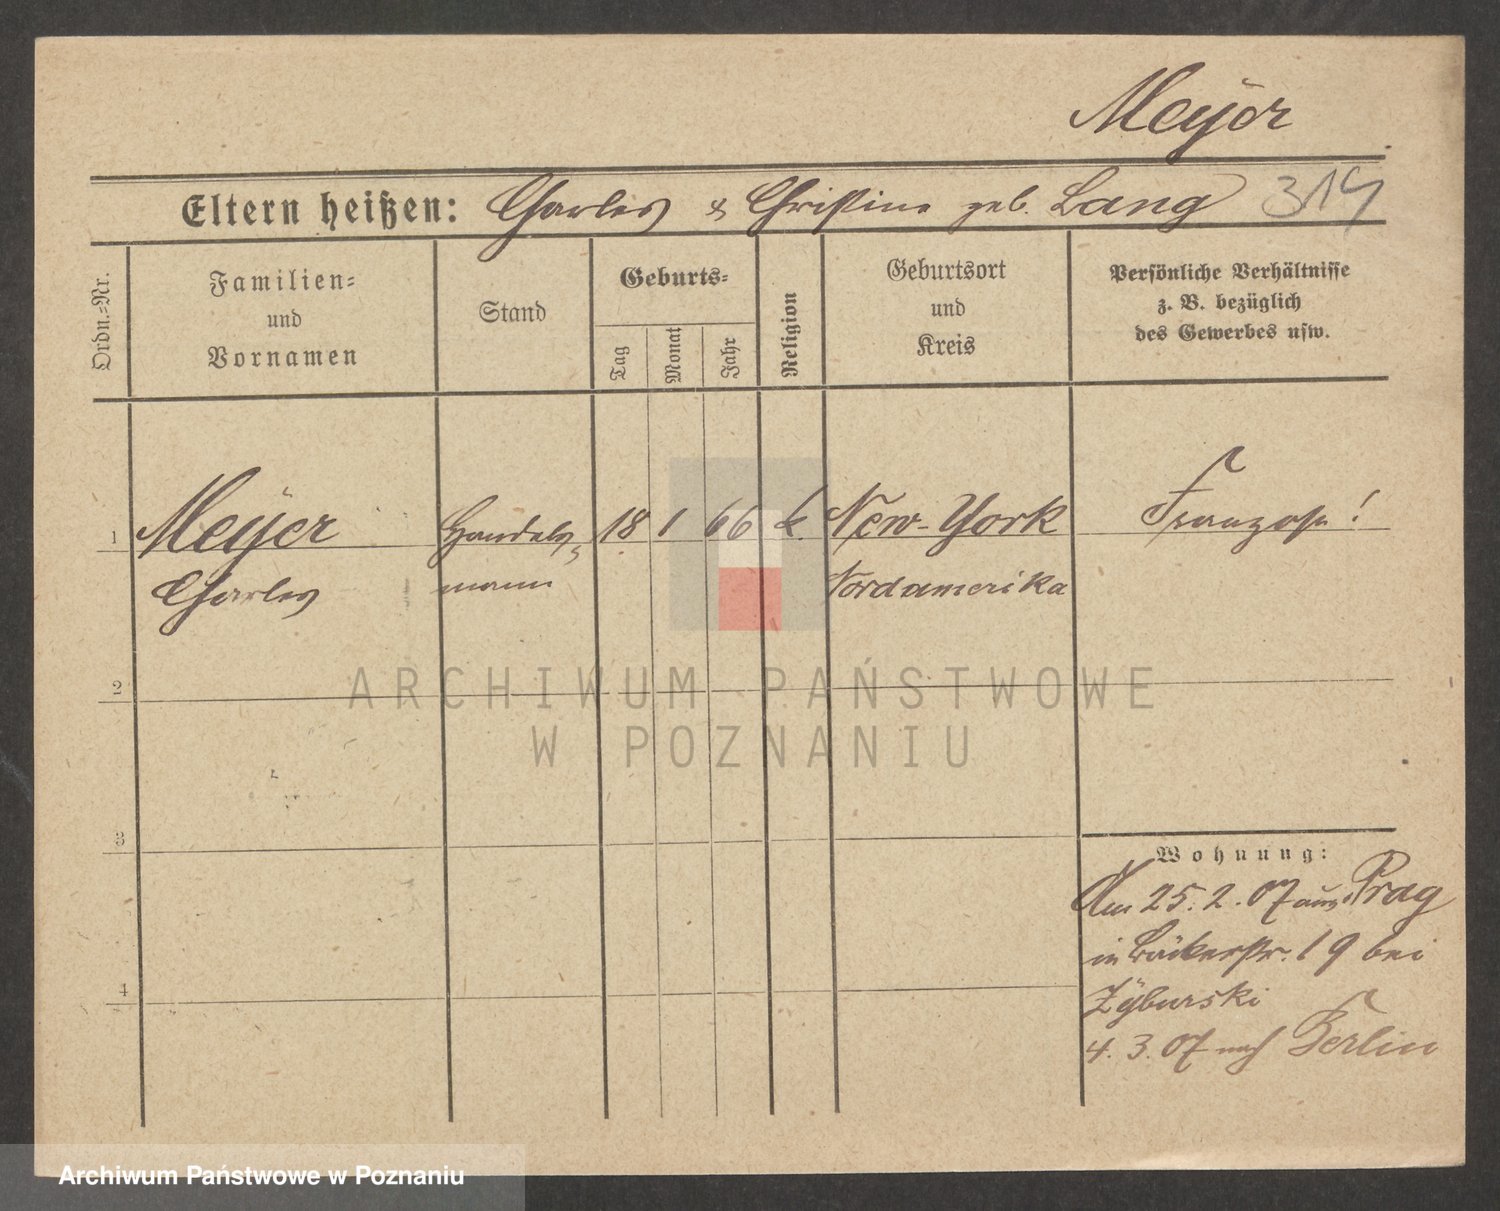 Meÿer
Eltern heißen: Charles & Christine geb. Lang 314
Ordn.=Nr.
Familien=
und
Vornamen
Stand
Geburts=
Tag
Monat
Jahr
Religion
Geburtsort
und
Kreis
Persönliche Verhältnisse
z. B. bezüglich
des Gewerbes usw.
1 Meÿer Handels= 18 1 66 k. New-York Franzose!
Charles mann Nordamerika
2
ARCHIWUM PAŃSTWOWE
W POZNANIU
3
Wohnung:
Am 25.2.07 aus Prag
in Bäckerstr. 19 bei
4
Zÿburski
4.3.07 nach Berlin
Archiwum Państwowe w Poznaniu